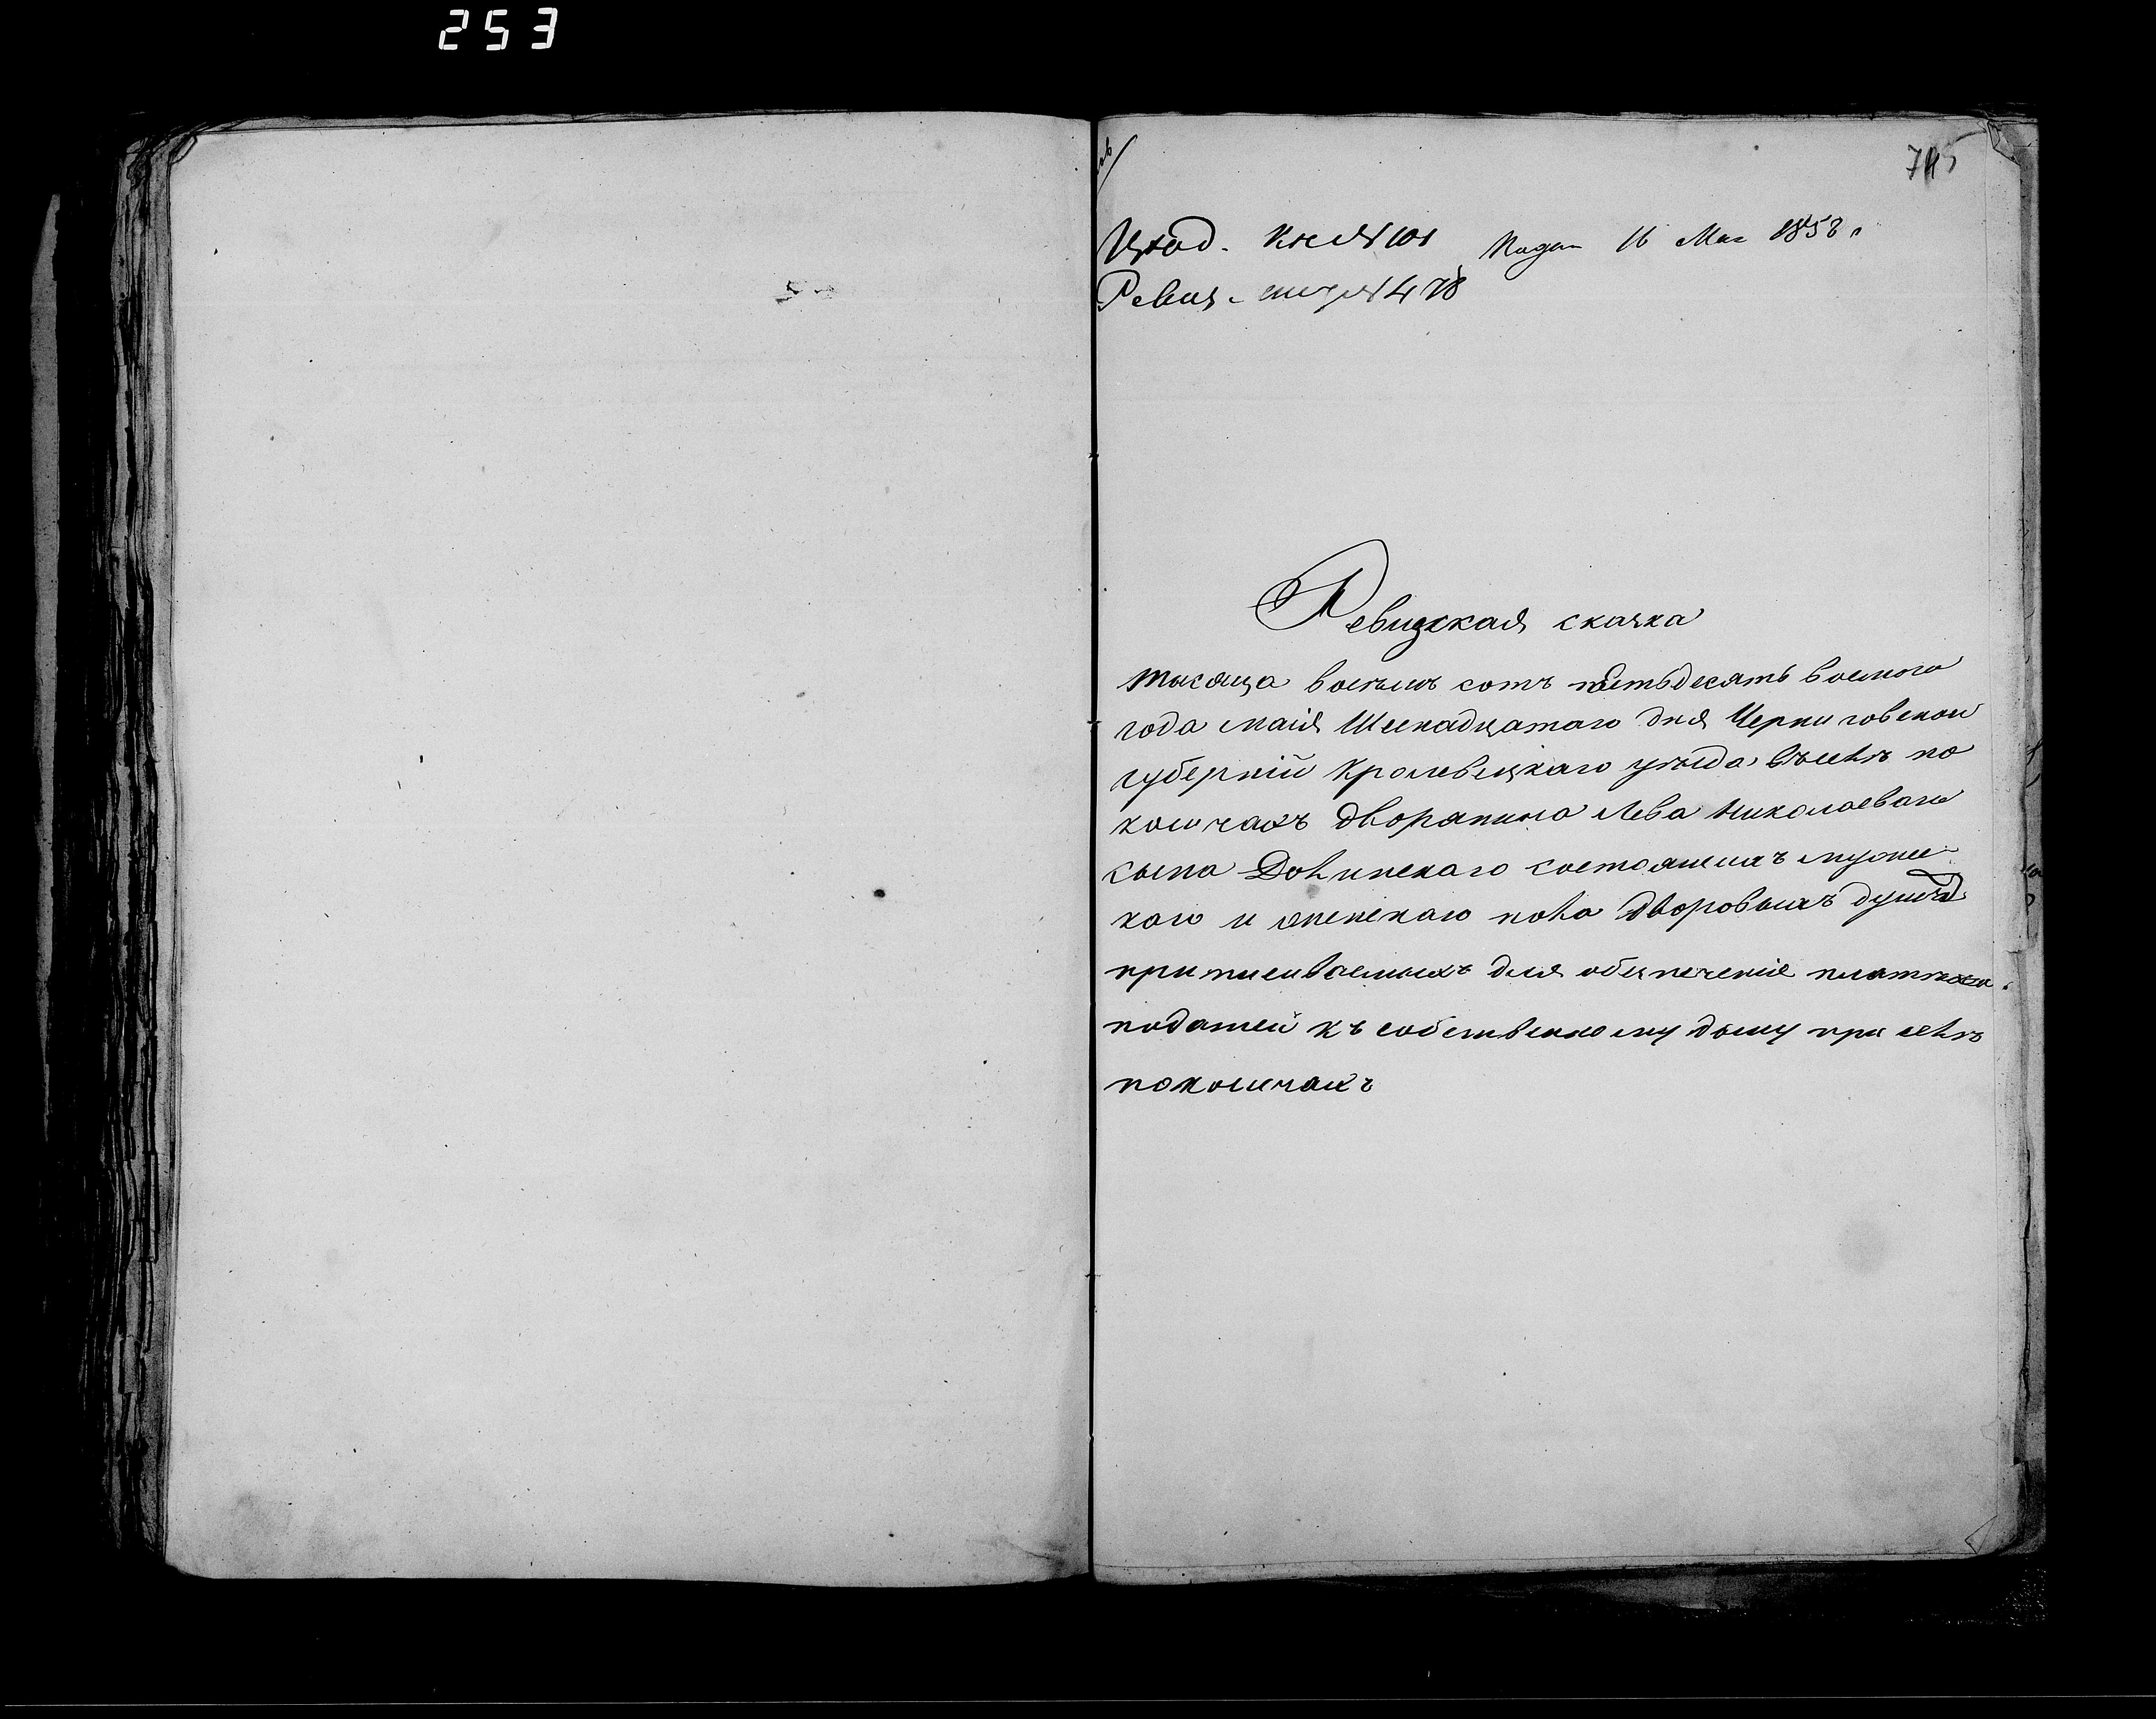 253
745
Вход. Кн. № 101 Подан 16 Мая 1858 г
Ревиз. № 478
Ревизкая сказка
тысяща восемь сотъ пятьдесятъ восмого
года маія Шеснадцатаго дня Черниговской
губерніи Кролевецкаго уезда въ селѣ По
кошчахъ дворянина Лева Николаеваго
сына состоящихъ мужес
каго и женскаго пола дворовыхъ душъ
приписываемыхъ для обезпеченіе платежа
податей къ собственному дому при селѣ
Покошчахъ